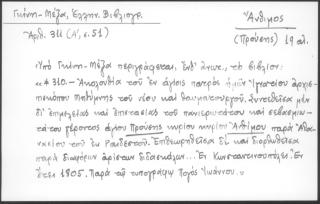 Γκίνη-Μέξα, Ἑλλην. Βιβλιογρ.
Ἀρθ. 311 (Α', σ. 51)
Ἄνθιμος
(Προύσης) 19 αἰ.
Ὑπὸ Γκίνη-Μέξα περιγράφεται, ἔνθ' ἄνωτ., τὸ βιβλίον:
«310.- Ἀκολουθία τοῦ ἐν ἁγίοις πατρὸς ἡμῶν Ἰγνατίου ἀρχιε-
πισκόπου Μηθύμνης τοῦ νέου καὶ θαυματουργοῦ. Συντεθεῖσα μὲν
δι' ἐπιμελείας καὶ ἐπιστασίας τοῦ πανιερωτάτου καὶ σεβασμιω-
τάτου γέροντος ἁγίου Προύσης κυρίου κυρίου Ἀνθίμου παρὰ Ἀθα-
νασίου τοῦ ἐκ Ραιδεστοῦ. Ἐπιθεωρηθεῖσα δὲ καὶ διορθωθεῖσα
παρὰ διαφόρων ἀρίστων διδασκάλων... Ἐν Κωνσταντινουπόλει. Ἐν
ἔτει 1805. Παρὰ τῷ τυπογράφῳ Πογὸς Ἰωάννου.»